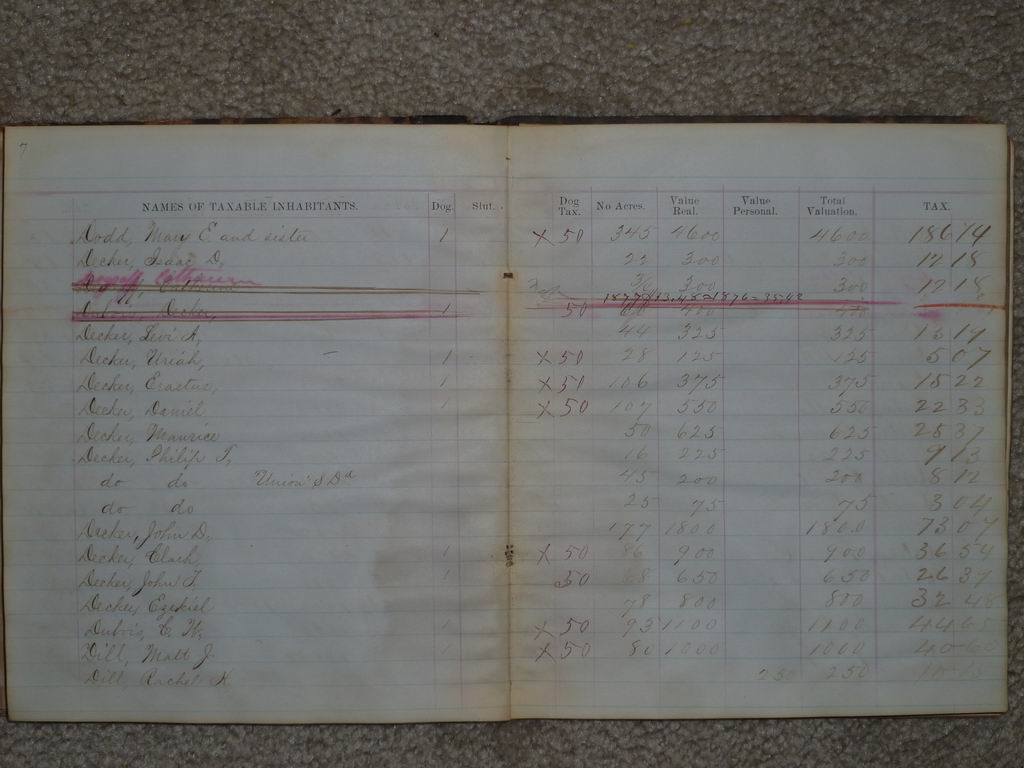 7
NAMES OF TAXABLE INHABITANTS. Dog. Slut. Dog Tax. No Acres. Value Real. Value Personal. Total Valuation. TAX.
Dodd, Mary E. and sister 1 X 50 345 4600 4600 186 74
Decker, Isaac D. 22 300 300 12 18
300 300 12 18
Decker, 1 50
Decker, Levi A, 44 325 325 13 19
Decker, Uriah, 1 X 50 28 125 125 5 07
Decker, Erastus, 1 X 50 106 375 375 15 22
Decker, Daniel 1 X 50 107 550 550 22 33
Decker, Maurice 50 625 625 25 37
Decker, Philip T, 16 225 225 9 13
do do Union S Dd 45 200 200 8 12
do do 25 75 75 3 04
Decker, John D. 177 1800 1800 73 07
Decker, Clark 1 X 50 86 900 900 36 54
Decker, John T. 1 50 68 650 650 26 37
Decker, Ezekiel 78 800 800 32 48
Dubois, E. H. 1 X 50 93 1100 1100 44 65
Dill, Matt J. 1 X 50 80 1000 1000 40 60
Dill, Rachel K 250 250